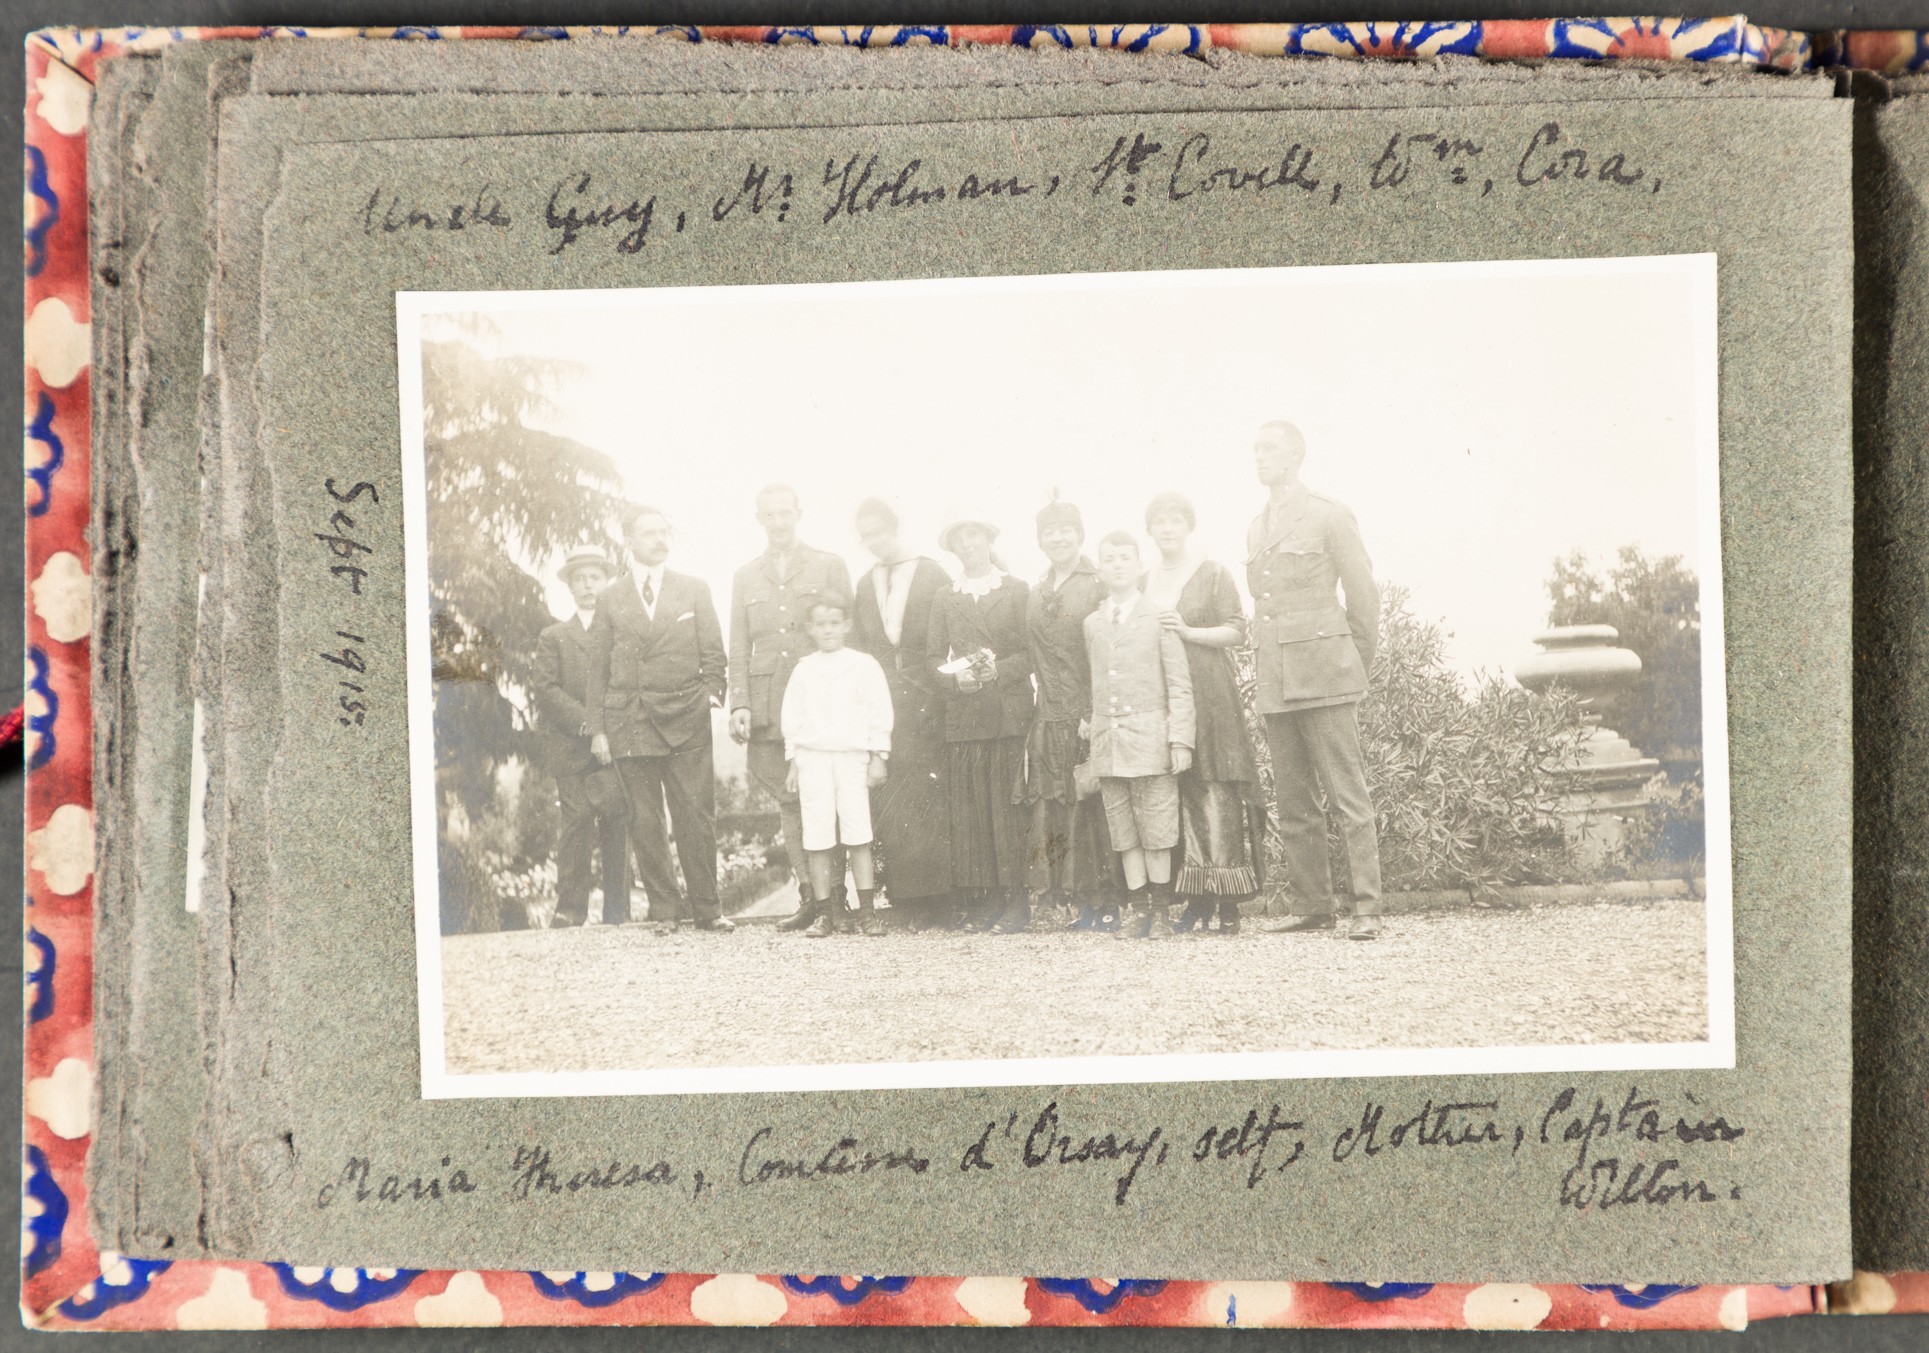 Uncle Guy, Mr: Holman, Lt: Covell, Wm:, Cora,
Sept 1915:
Maria Theresa, Comtesse d'Orsay, self, Mother, Captain
Wilton.